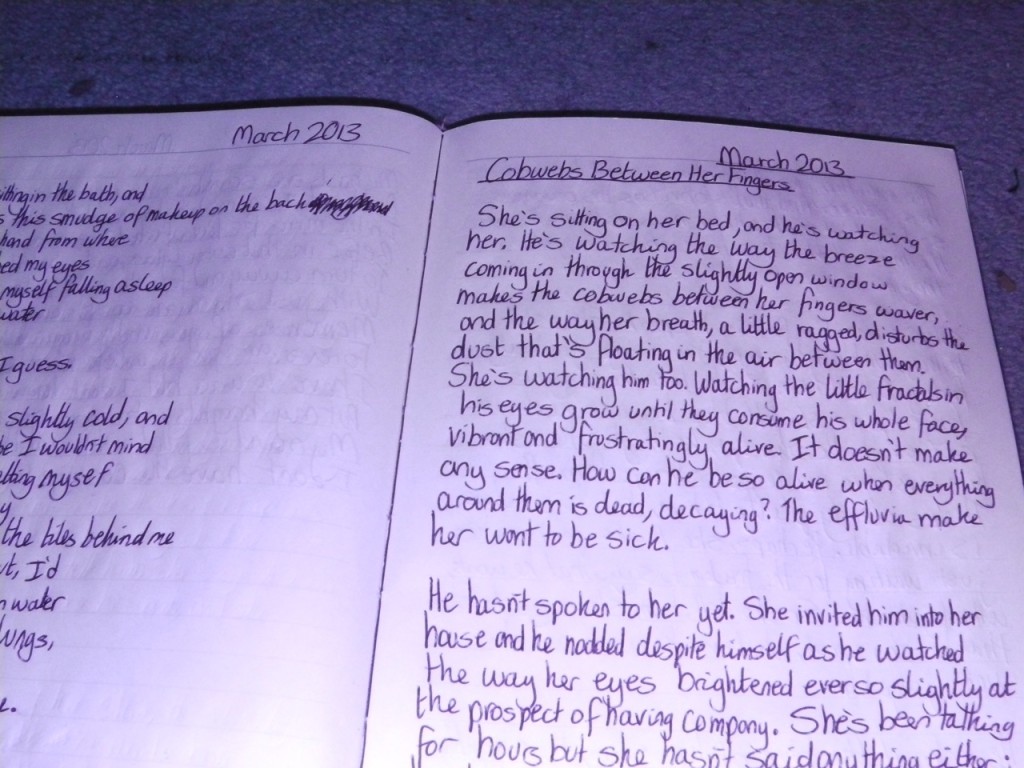 March 2013
sitting in the bath, and
s this smudge of makeup on the back
hand from where
ed my eyes
myself falling asleep
water
I guess.
slightly cold, and
be I wouldn't mind
etting myself
y
the tiles behind me
ut, I'd
n water
lungs,
e.
March 2013
Cobwebs Between Her Fingers
She's sitting on her bed, and he's watching
her. He's watching the way the breeze
coming in through the slightly open window
makes the cobwebs between her fingers waver,
and the way her breath, a little ragged, disturbs the
dust that's floating in the air between them.
She's watching him too. Watching the little fractals in
his eyes grow until they consume his whole face,
vibrant and frustratingly alive. It doesn't make
any sense. How can he be so alive when everything
around them is dead, decaying? The effluvia make
her want to be sick.
He hasn't spoken to her yet. She invited him into her
house and he nodded despite himself as he watched
the way her eyes brightened ever so slightly at
the prospect of having company. She's been talking
for hours but she hasn't said anything either;